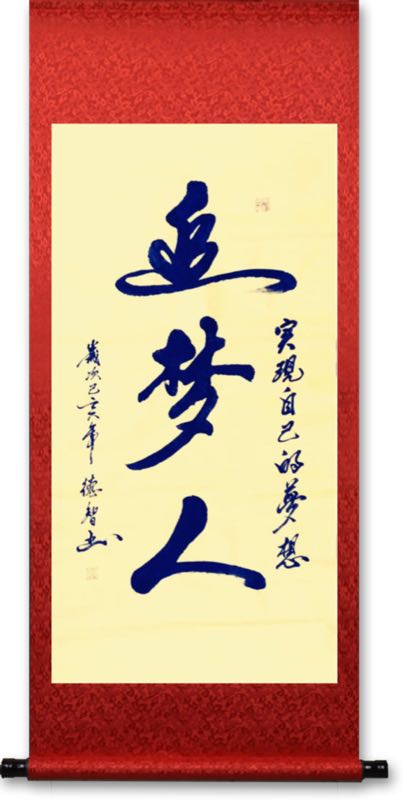 实现自己的夢想
追梦人
歲次己亥年 德智书